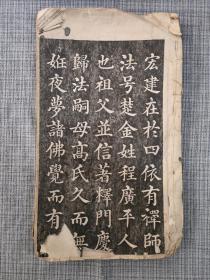 宏建在於四依有禪師
法号楚金姓程廣平人
也祖父並信著釋門慶
歸法嗣母髙氏久而無
姙夜夢諸佛覺而有